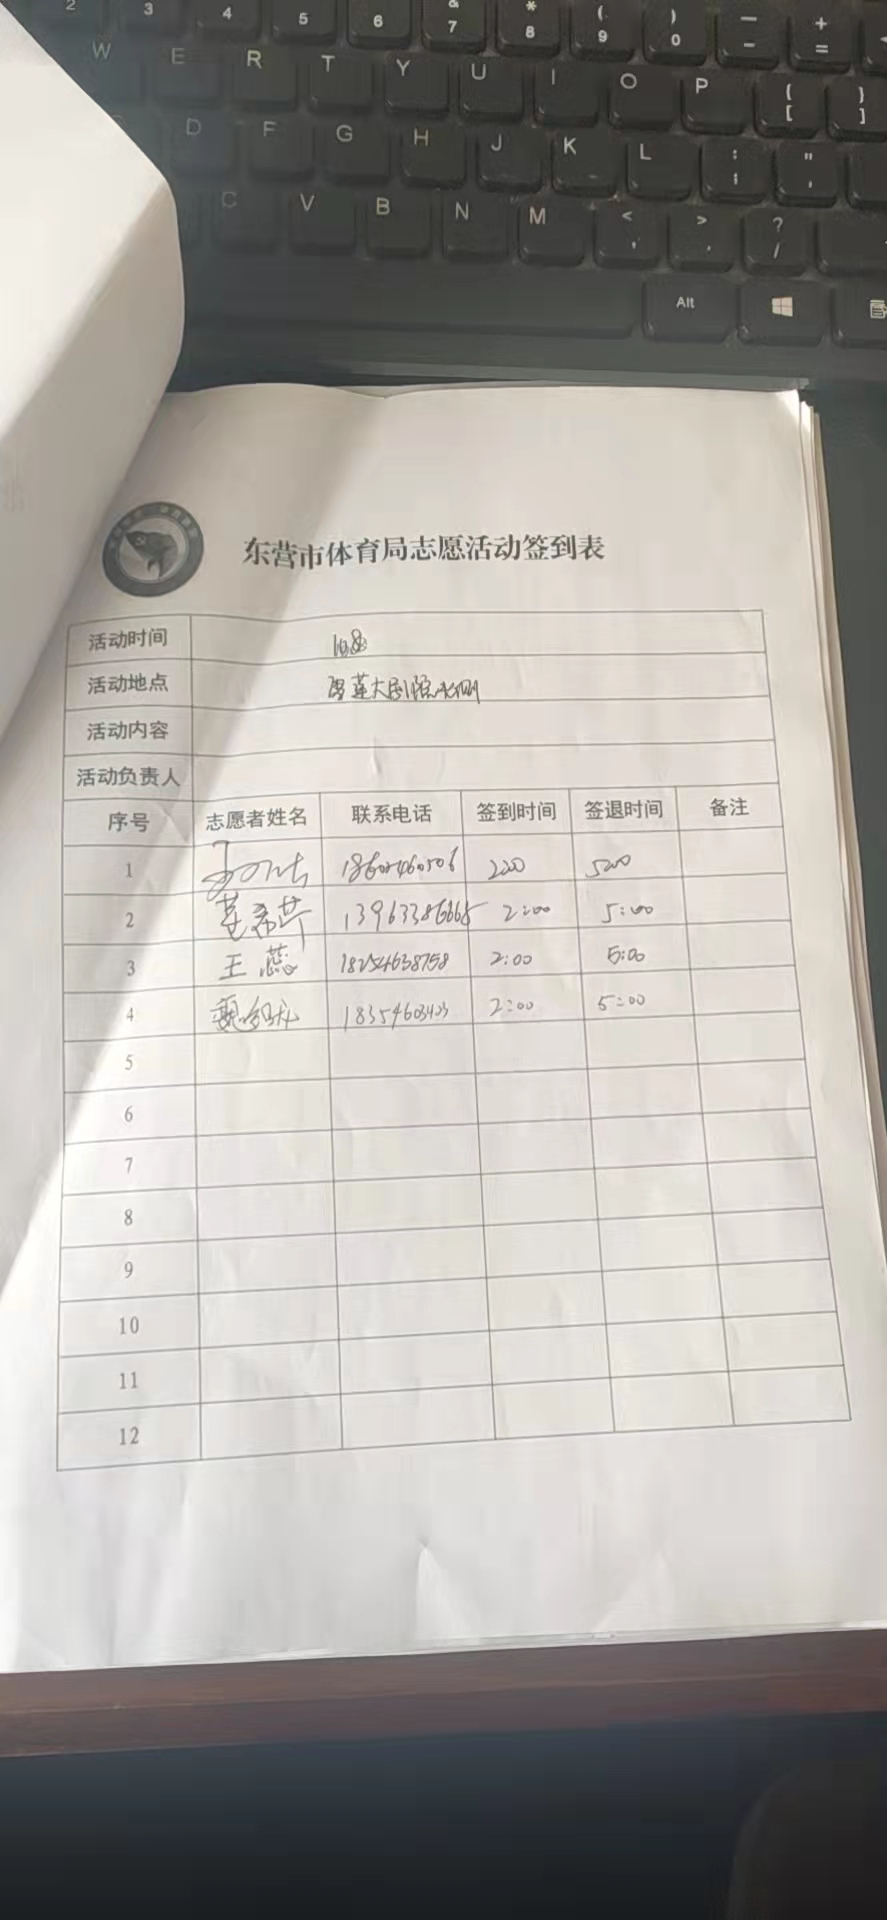 2 3 4 5 6 & 7 * 8 ( 9 ) 0 — - + =
W E R T Y U I O P { [ } ]
D F G H J K L : ; " '
C V B N M < , > . ? /
Alt
东营市体育局志愿活动签到表
活动时间
活动地点 大剧院
活动内容
活动负责人
序号 志愿者姓名 联系电话 签到时间 签退时间 备注
1 18605460506 2:00 5:00
2 13963386665 2:00 5:00
3 王蕊 18254638758 2:00 5:00
4 18354603403 2:00 5:00
5
6
7
8
9
10
11
12